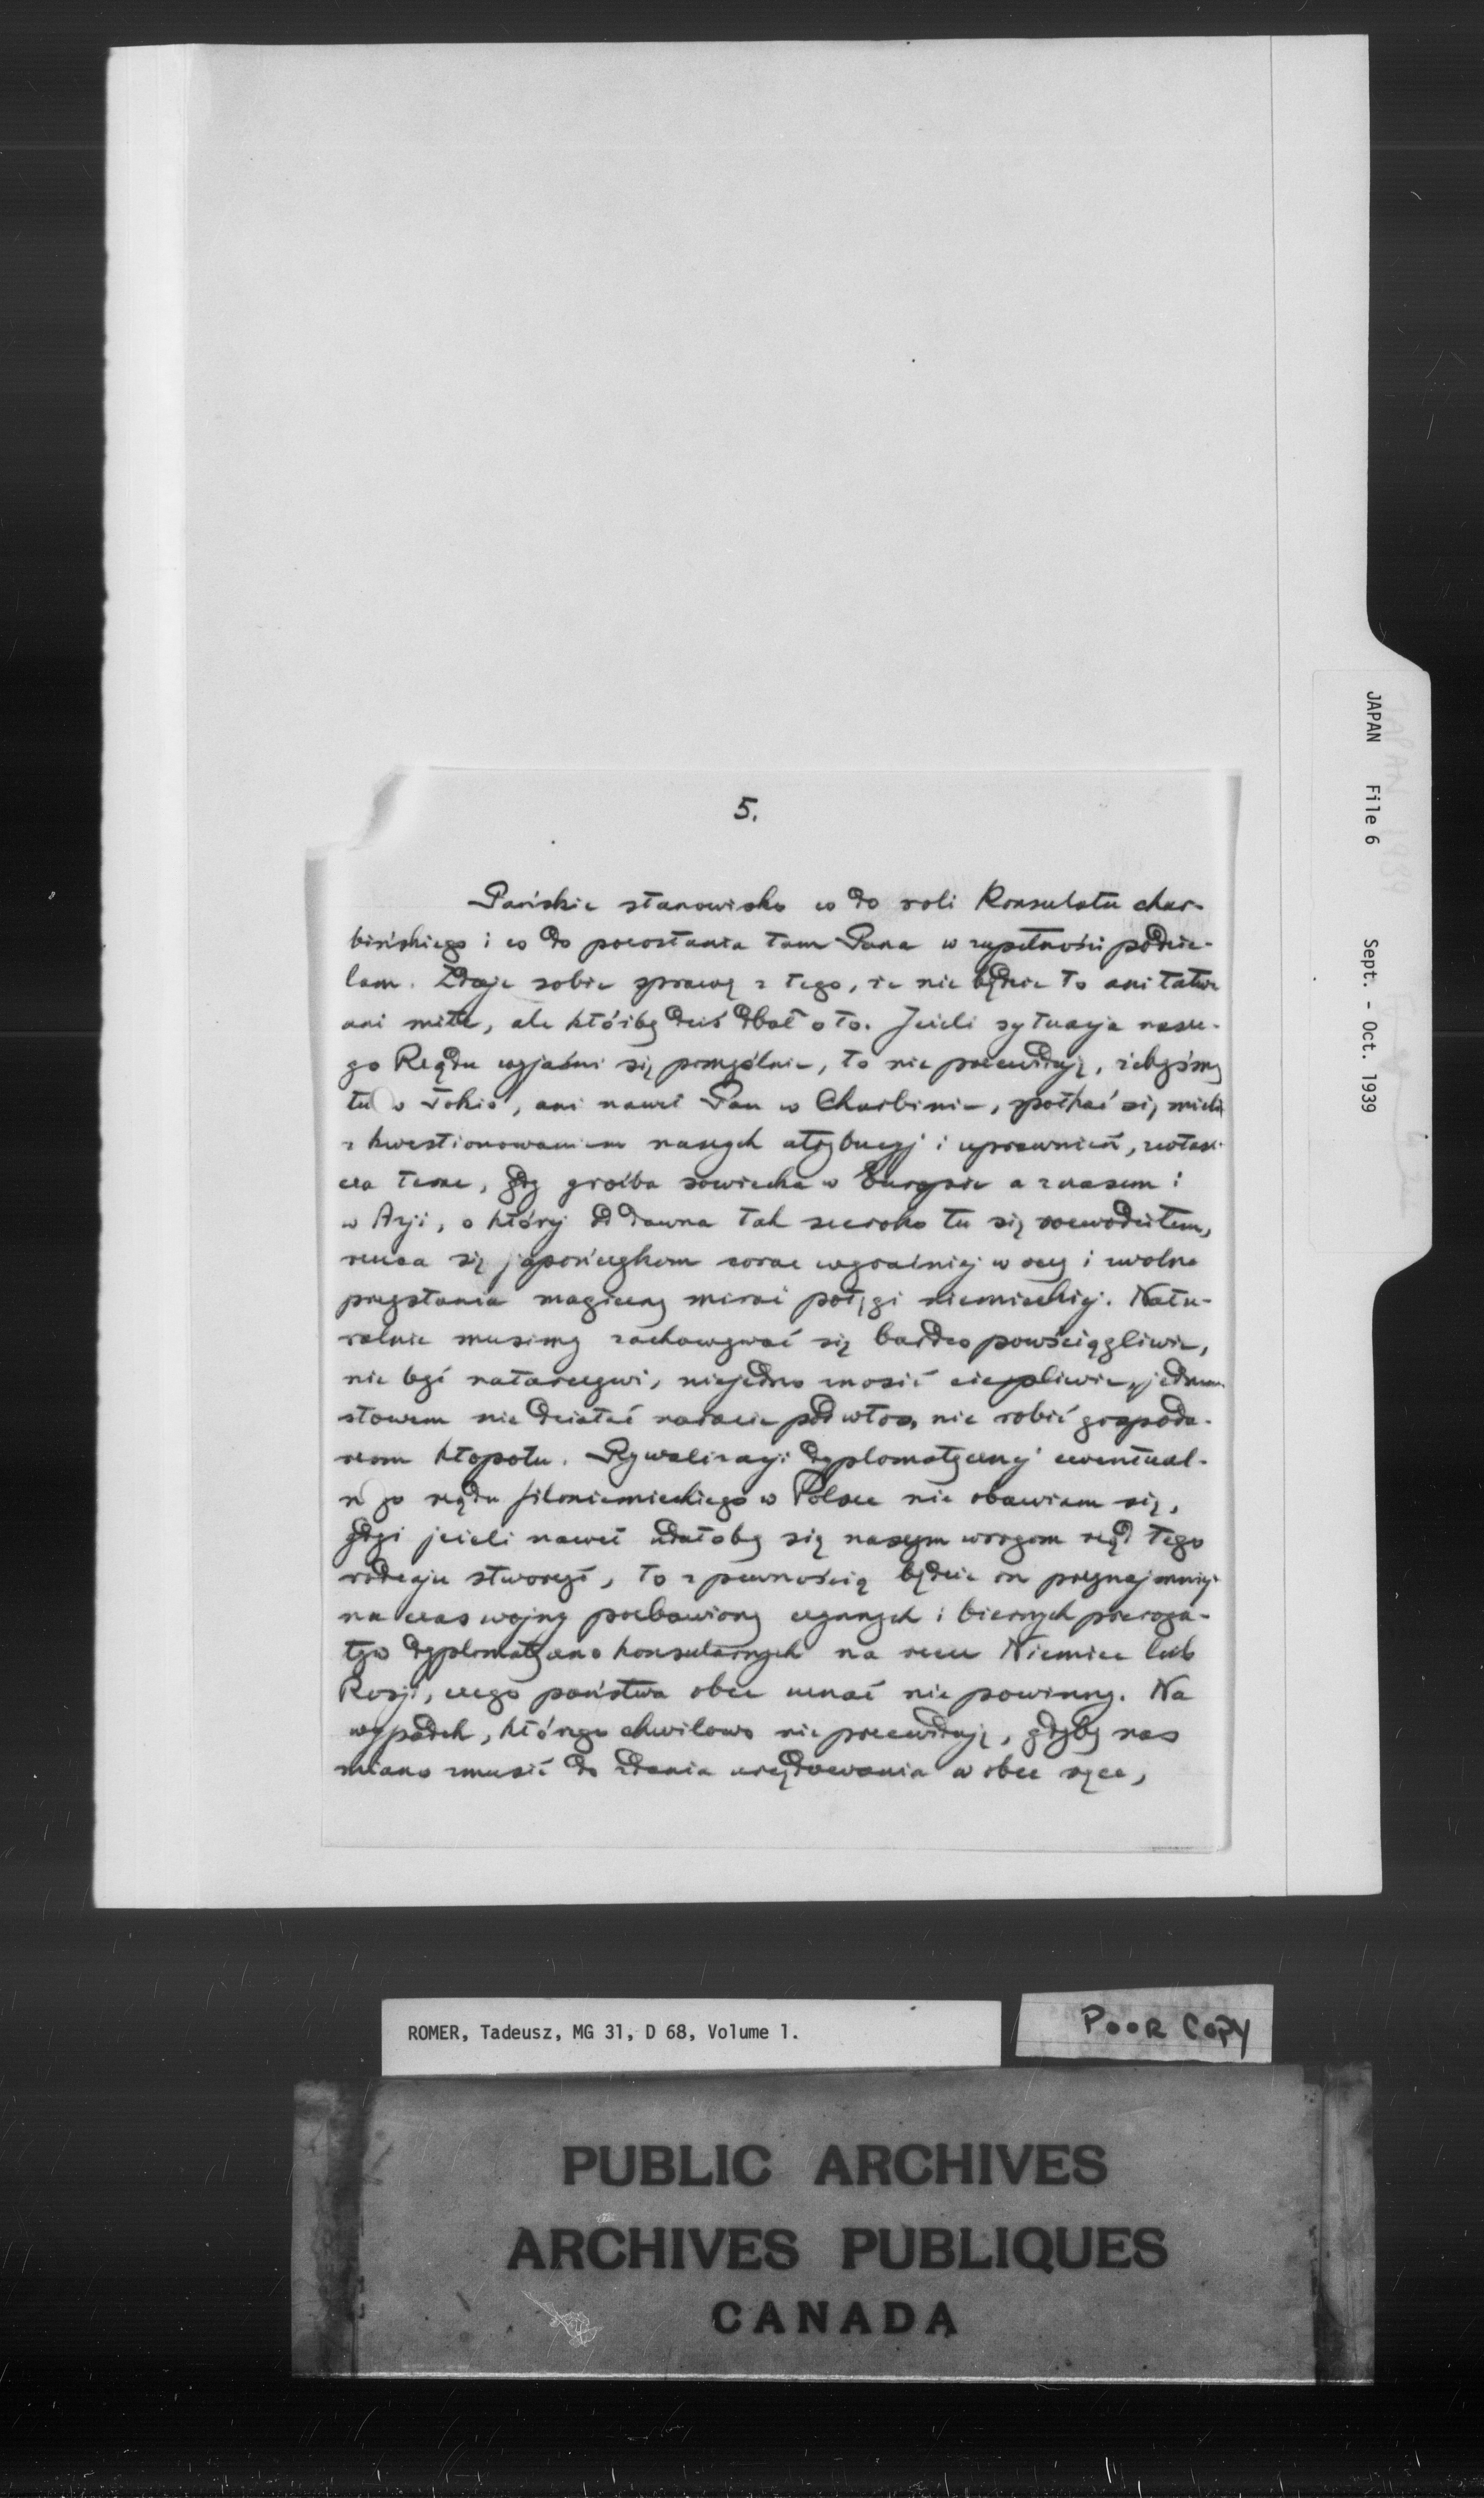 5.
Pańskie stanowisko co do roli Konsulatu char-
bińskiego i co do pozostania tam Pana w zupełności podzie-
lam. Zdaję sobie sprawę z tego, że nie będzie to ani łatwe
ani miłe, ale któżby dziś dbał o to. Jeżeli sytuacja nasze-
go Rządu wyjaśni się pomyślnie, to nie przewiduję, żebyśmy
tu w Tokio, ani nawet Pan w Charbinie, spotkać się mieli
z kwestionowaniem naszych atrybucyj i uprawnień, zwłasz-
cza teraz, gdy groźba sowiecka w Europie a z czasem i
w Azji, o której od dawna tak szeroko tu się rozwodziłem,
rzuca się japończykom coraz wyraźniej w oczy i zwolna
przysłania magiczny miraż potęgi niemieckiej. Natu-
ralnie musimy zachowywać się bardzo powściągliwie,
nie być natarczywi, niejedno znosić cierpliwie, jednem
słowem nie działać narazie pod włos, nie robić gospoda-
rzom kłopotu. Rywalizacji dyplomatycznej ewentual-
nego rządu filoniemieckiego w Polsce nie obawiam się,
gdyż jeżeli nawet udałoby się naszym wrogom rząd tego
rodzaju stworzyć, to z pewnością będzie on przynajmniej
na czas wojny pozbawiony czynnych i biernych preroga-
tyw dyplomatyczno konsularnych na rzecz Niemiec lub
Rosji, czego państwa obce uznać nie powinny. Na
wypadek, którego chwilowo nie przewiduję, gdyby nas
miano zmusić do zdania urzędowania w obce ręce,
JAPAN File 6 Sept. - Oct. 1939
ROMER, Tadeusz, MG 31, D 68, Volume 1.
POOR COPY
PUBLIC ARCHIVES
ARCHIVES PUBLIQUES
CANADA